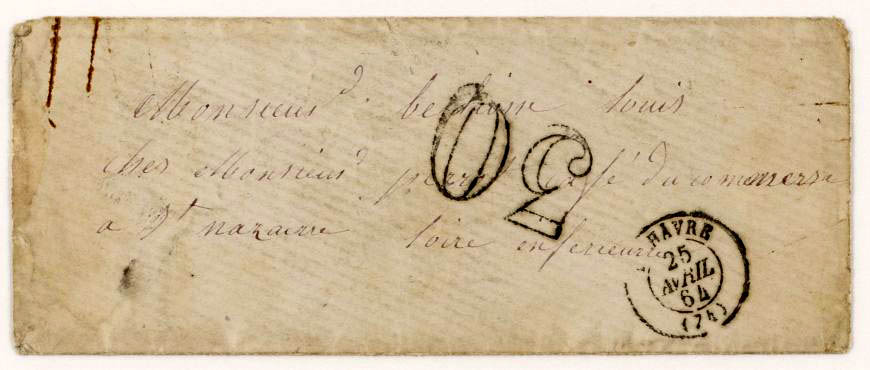 Monsieur louis
chez Monsieur café du commerse
a St nazaire loire enferieure
30
HAVRE
25
AVRIL
64
(74)